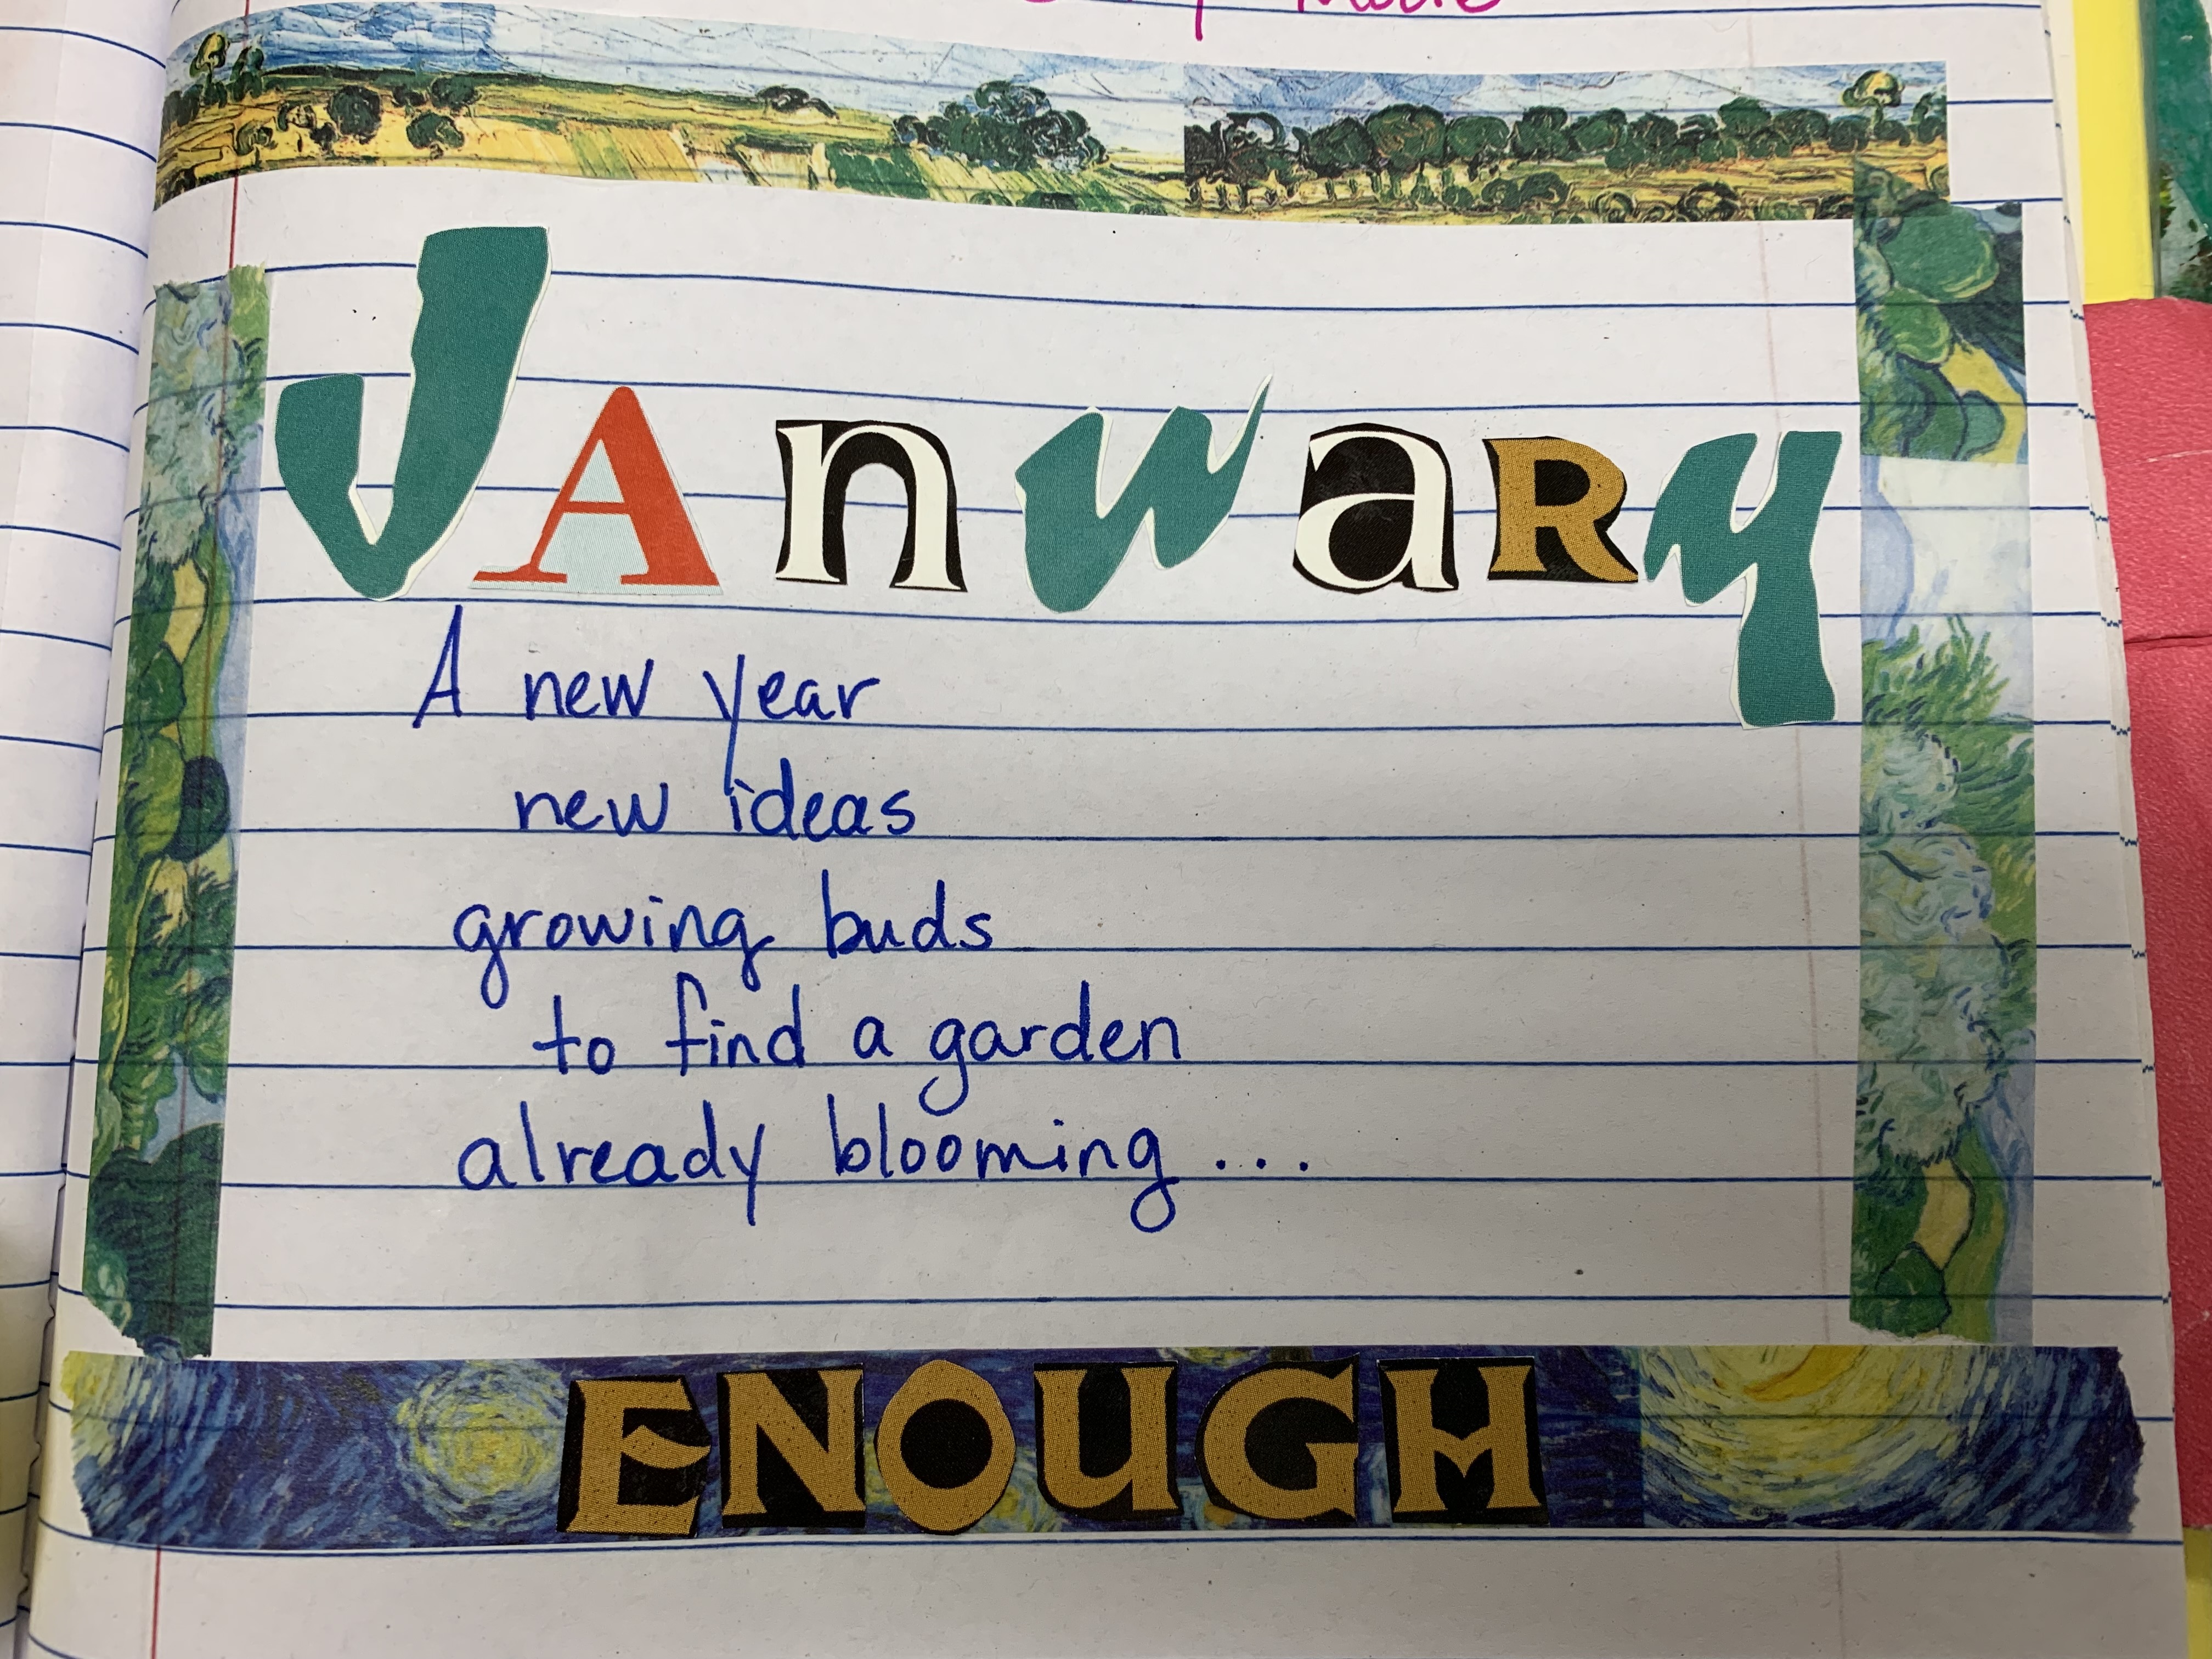 JAnuaRy
A new year
new ideas
growing buds
to find a garden
already blooming ...
ENOUGH